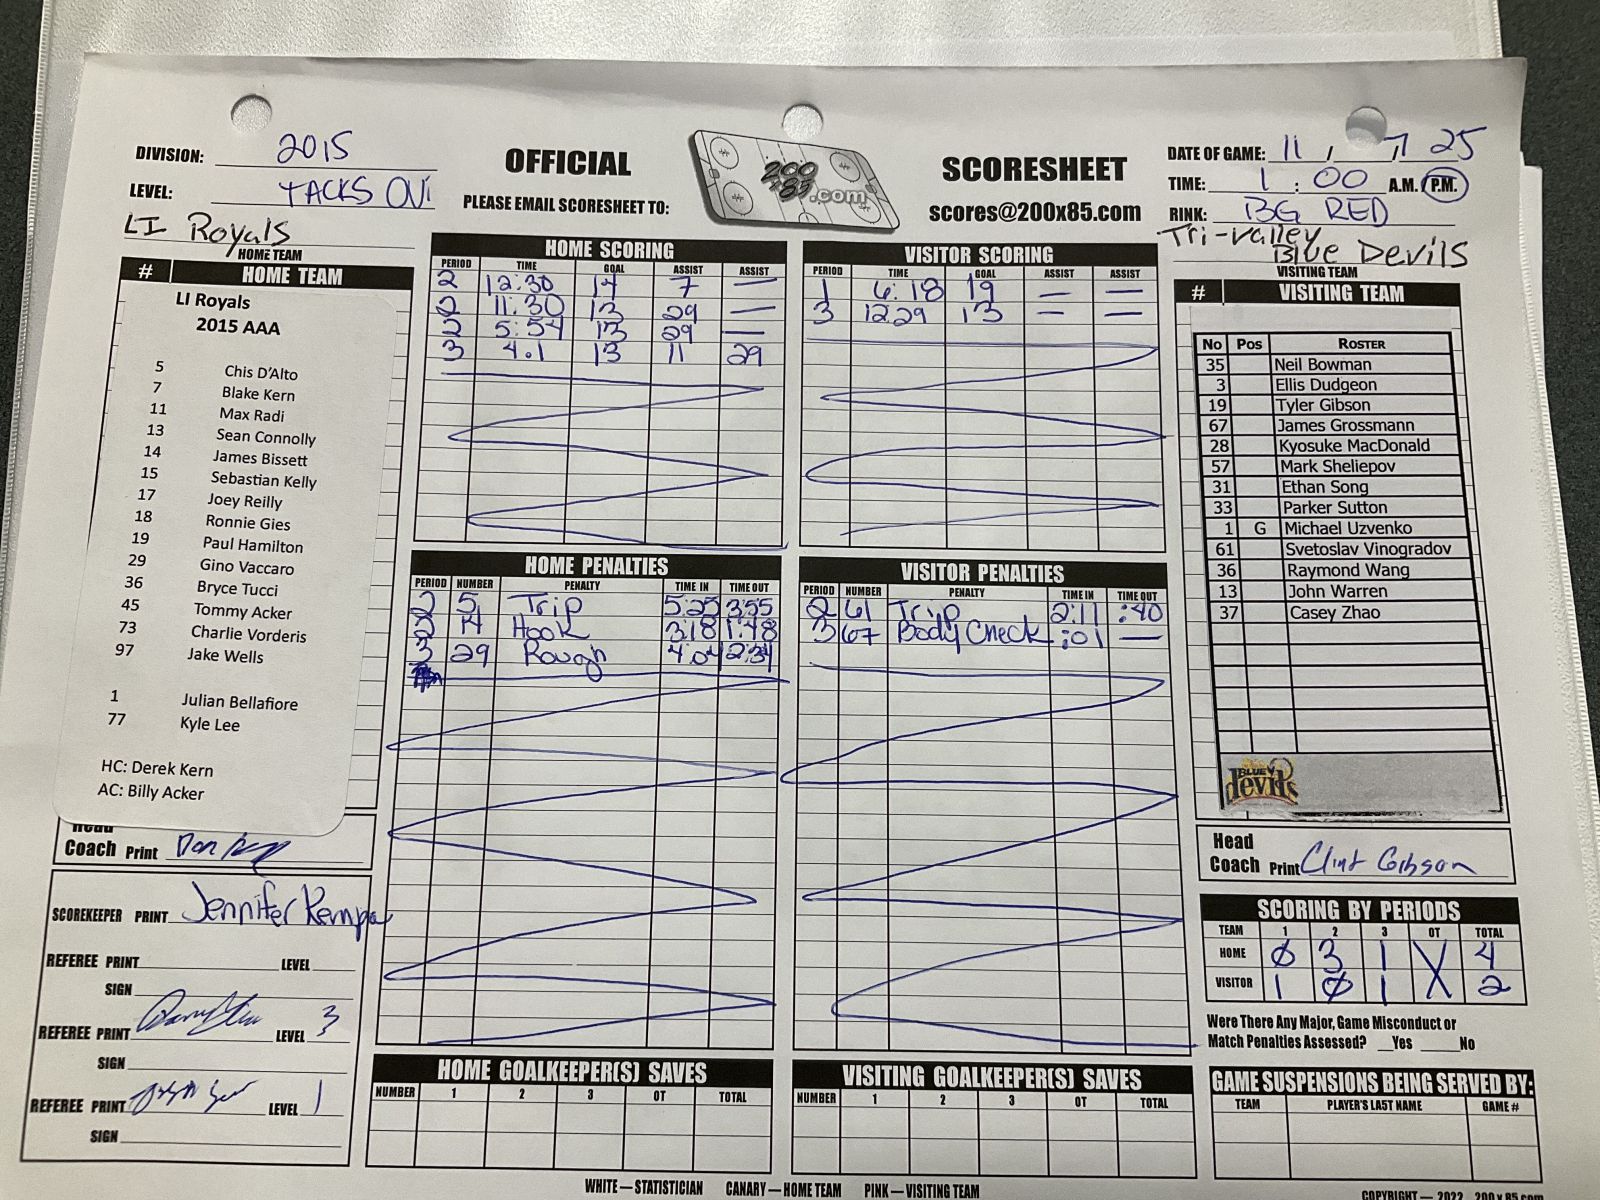 DIVISION: 2015
LEVEL: TACKS OVI
OFFICIAL
PLEASE EMAIL SCORESHEET TO:
200 x 85 .com
SCORESHEET
scores@200x85.com
DATE OF GAME: 11 / 7 25
TIME: 1 : 00 A.M. / P.M.
RINK: BG RED
LI Royals
HOME TEAM
Tri-valley
Blue Devils
VISITING TEAM
# HOME TEAM
LI Royals
2015 AAA
5 Chis D'Alto
7 Blake Kern
11 Max Radi
13 Sean Connolly
14 James Bissett
15 Sebastian Kelly
17 Joey Reilly
18 Ronnie Gies
19 Paul Hamilton
29 Gino Vaccaro
36 Bryce Tucci
45 Tommy Acker
73 Charlie Vorderis
97 Jake Wells
1 Julian Bellafiore
77 Kyle Lee
HC: Derek Kern
AC: Billy Acker
Head
Coach Print
SCOREKEEPER PRINT Jennifer Kempa
REFEREE PRINT LEVEL
SIGN
REFEREE PRINT LEVEL 3
SIGN
REFEREE PRINT LEVEL 1
SIGN
HOME SCORING
PERIOD TIME GOAL ASSIST ASSIST
2 12:30 14 7 —
2 11:30 13 29 —
2 5:54 13 29 —
3 4.1 13 11 29
VISITOR SCORING
PERIOD TIME GOAL ASSIST ASSIST
1 6:18 19 — —
3 1229 13 — —
HOME PENALTIES
PERIOD NUMBER PENALTY TIME IN TIME OUT
2 5 Trip 5:25 3:55
2 14 Hook 3:18 1:48
3 29 Rough 4:04 2:34
VISITOR PENALTIES
PERIOD NUMBER PENALTY TIME IN TIME OUT
2 61 Trip 2:11 :40
3 67 Body Check :01 —
HOME GOALKEEPER(S) SAVES
NUMBER 1 2 3 OT TOTAL
VISITING GOALKEEPER(S) SAVES
NUMBER 1 2 3 OT TOTAL
# VISITING TEAM
No Pos ROSTER
35 Neil Bowman
3 Ellis Dudgeon
19 Tyler Gibson
67 James Grossmann
28 Kyosuke MacDonald
57 Mark Sheliepov
31 Ethan Song
33 Parker Sutton
1 G Michael Uzvenko
61 Svetoslav Vinogradov
36 Raymond Wang
13 John Warren
37 Casey Zhao
BLUE devils
Head
Coach Print Clint Gibson
SCORING BY PERIODS
TEAM 1 2 3 OT TOTAL
HOME 0 3 1 X 4
VISITOR 1 0 1 X 2
Were There Any Major, Game Misconduct or
Match Penalties Assessed? __Yes ____No
GAME SUSPENSIONS BEING SERVED BY:
TEAM PLAYER'S LAST NAME GAME #
WHITE — STATISTICIAN CANARY — HOME TEAM PINK — VISITING TEAM
COPYRIGHT — 2022 200 x 85.com